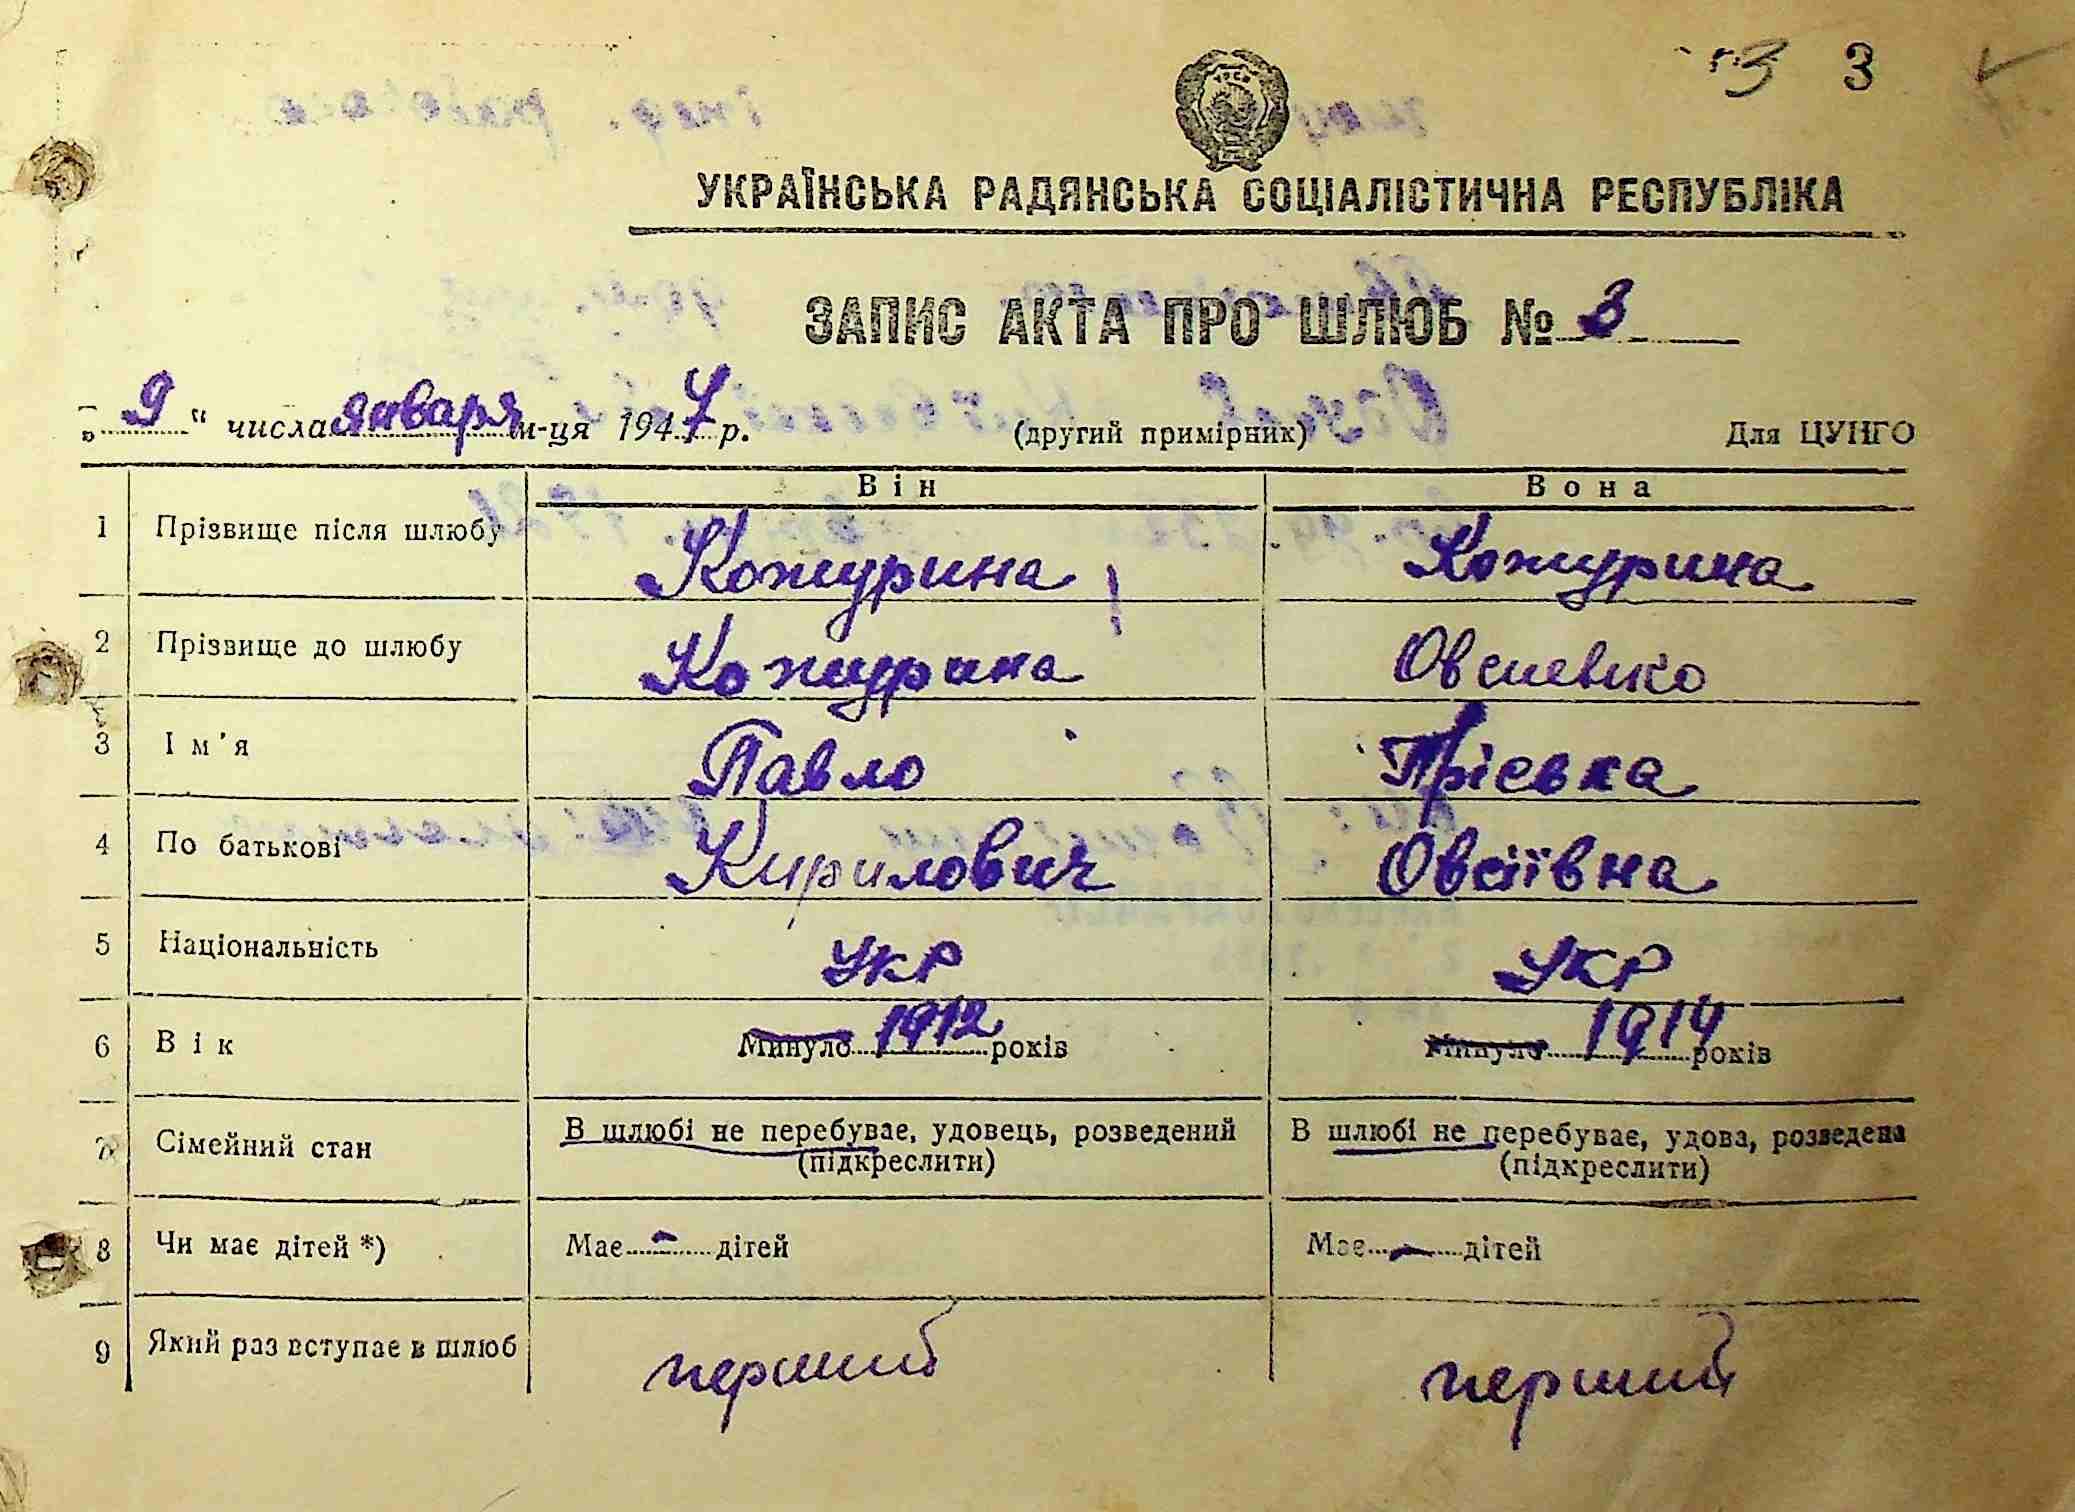 3 3
УКРАЇНСЬКА РАДЯНСЬКА СОЦІАЛІСТИЧНА РЕСПУБЛІКА
ЗАПИС АКТА ПРО ШЛЮБ № 3
„ 9 “ числа января м-ця 1947 р. (другий примірник) Для ЦУНГО
Він Вона
1 Прізвище після шлюбу Кожурина Кожурина
2 Прізвище до шлюбу Кожурина Овсиенко
3 Ім'я Павло Пріська
4 По батькові Кирилович Овсіївна
5 Національність УКР УКР
6 Вік Минуло 1912 років Минуло 1914 років
7 Сімейний стан В шлюбі не перебуває, удовець, розведений В шлюбі не перебуває, удова, розведена
(підкреслити) (підкреслити)
8 Чи має дітей *) Має - дітей Має - дітей
9 Який раз вступає в шлюб перший перший